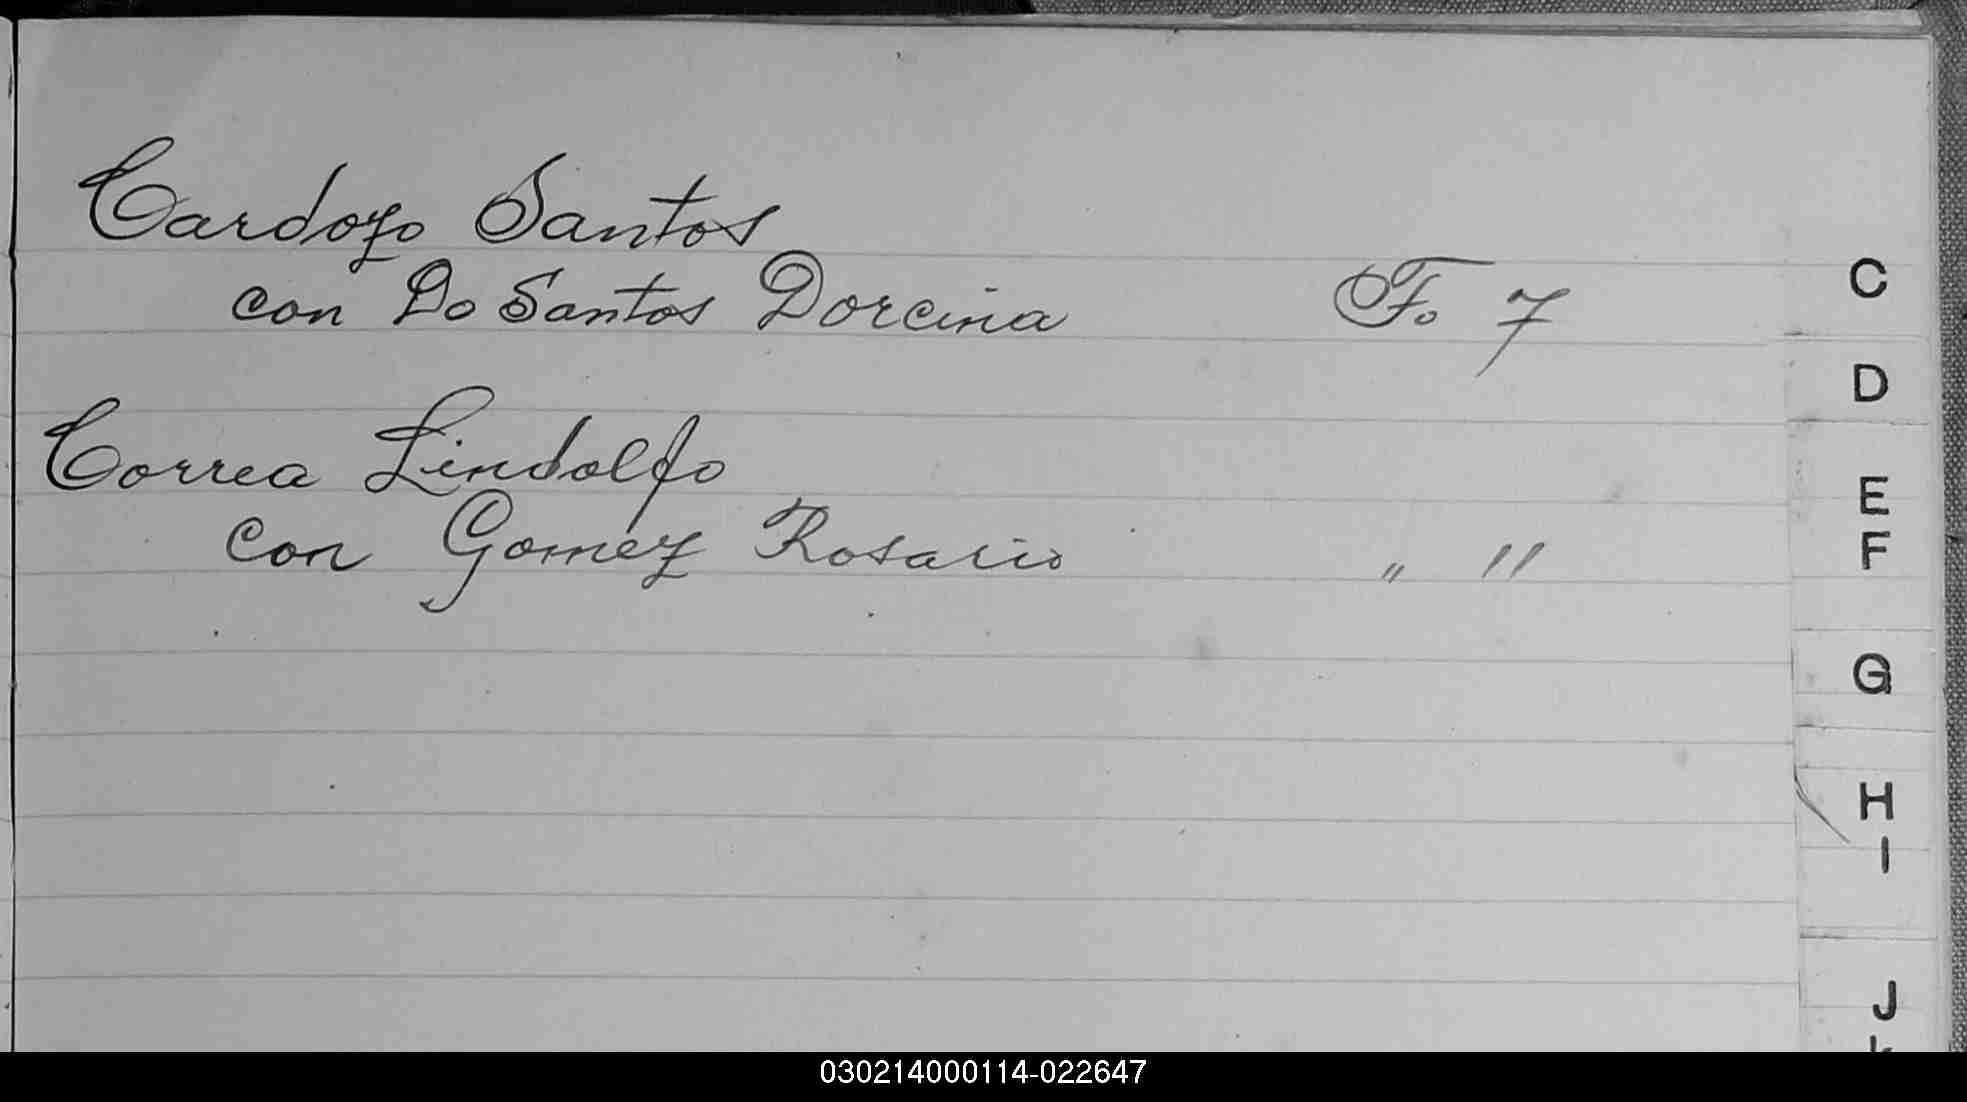 Cardozo Santos
con Do Santos Dorcina F. 7
Correa Lindolfo
con Gomez Rosario " 11
C
D
E
F
G
H
I
J
030214000114-022647